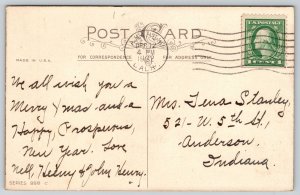 POST CARD
DEC 17
4 PM
CALIF.
MADE IN U.S.A.
FOR CORRESPONDENCE
FOR ADDRESS ONLY
We all wish you a
Merry Xmas and a
Happy, Prosperous,
New Year. Love
Nell, Henry & John Henry.
SERIES
Mrs. Tena Stanley,
521- W. 5th St,
Anderson,
Indiana.